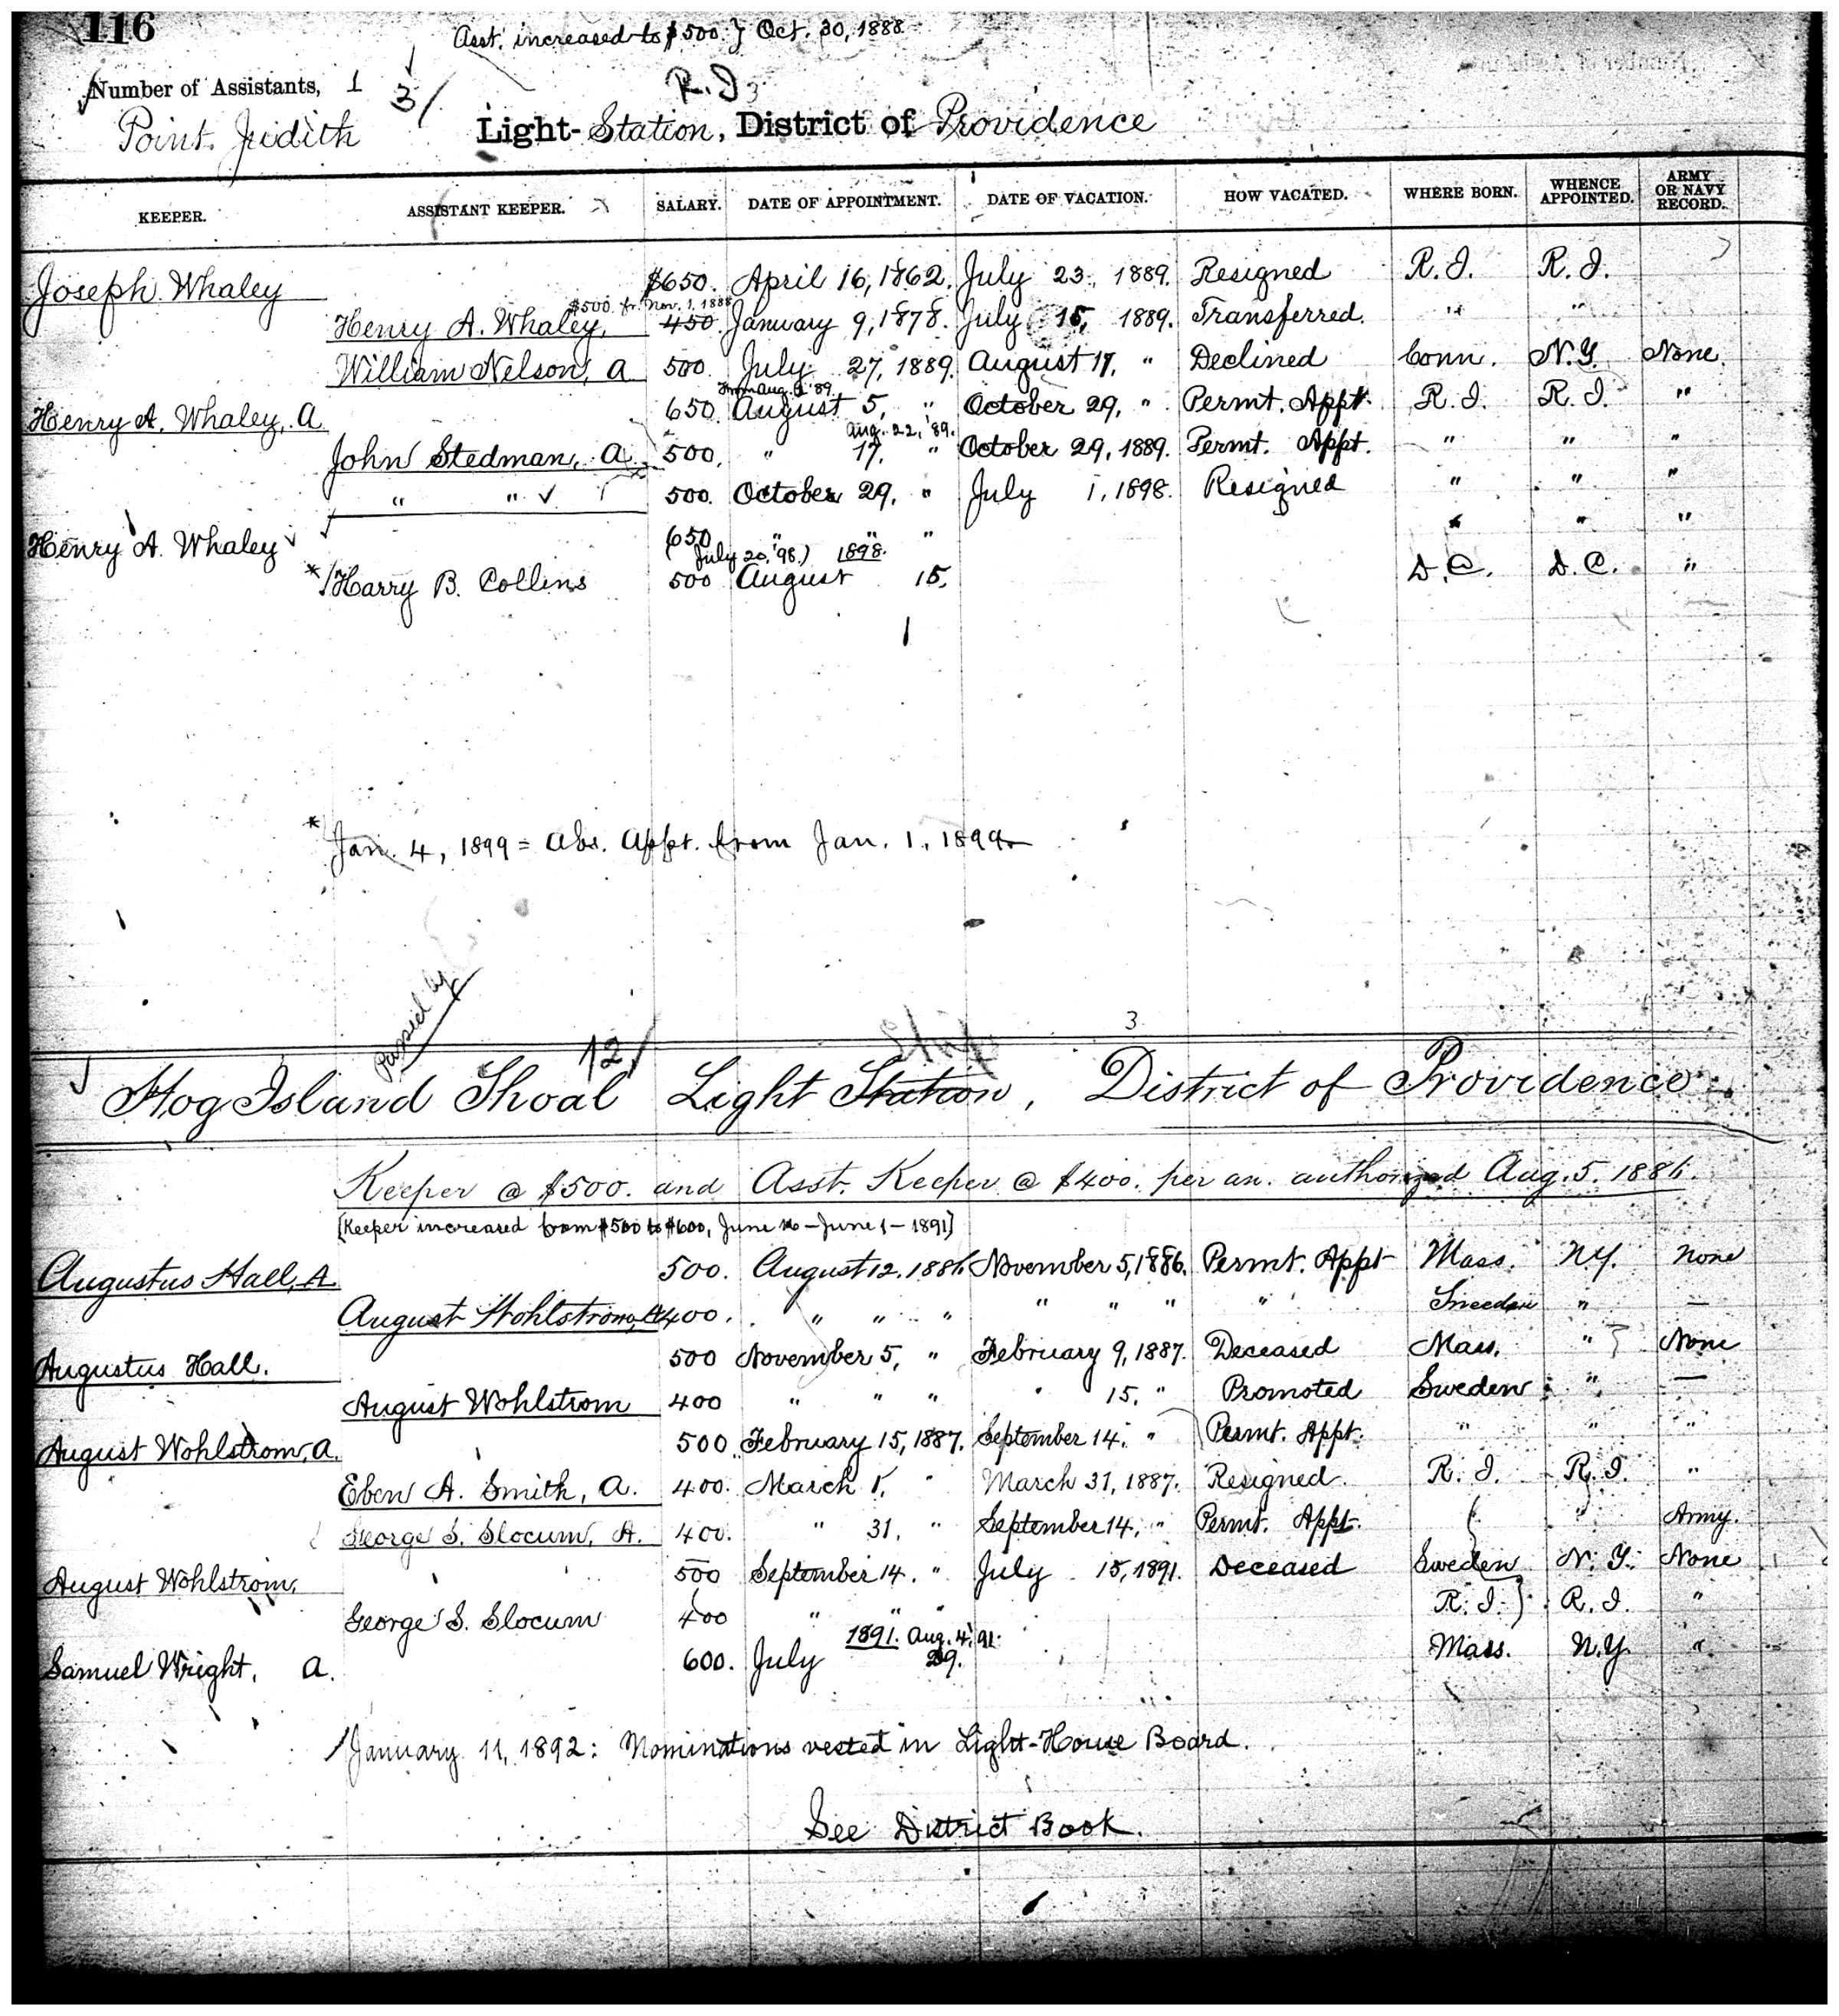 116
Asst. increased to $500 } Oct. 30, 1888
Number of Assistants, 1
3/
R. I. 3
Point Judith Light-Station, District of Providence
KEEPER. ASSISTANT KEEPER. SALARY. DATE OF APPOINTMENT. DATE OF VACATION. HOW VACATED. WHERE BORN. WHENCE APPOINTED. ARMY OR NAVY RECORD.
Joseph Whaley $650. April 16, 1862. July 23, 1889. Resigned R. I. R. I.
$500 fr. Nov. 1, 1888
Henry A. Whaley, 450. January 9, 1878. July 15, 1889. Transferred. " "
William Nelson, a 500. July 27, 1889. August 17, " Declined Conn. N.Y. None
from aug. 9 '89
Henry A. Whaley, a 650. August 5, " October 29, " Permt. Appt. R. I. R. I. "
Aug. 22, '89.
John Stedman, a 500. " 17, " October 29, 1889. Permt. Appt. " " "
" " ✓ 500. October 29, " July 1, 1898. Resigned " " "
Henry A. Whaley ✓ 650 " " " " " "
(July 20, '98.) 1898.
*/ Harry B. Collins 500 August 15. D. C. D. C. "
* Jan. 4, 1899 = Abs. Appt. from Jan. 1, 1899.
Passed by
12/
Ship
3
Hog Island Shoal Light Station, District of Providence.
Keeper @ $500. and Asst. Keeper @ $400. per an. authorized Aug. 5. 1886.
[Keeper increased from $500 to $600, June 10 - June 1 - 1891]
Augustus Hall, A. 500. August 12. 1886. November 5, 1886. Permt. Appt Mass. N.Y. None
August Wohlstrom, A 400. " " " " " " " Sweden " —
Augustus Hall. 500 November 5, " February 9, 1887. Deceased Mass. " None
August Wohlstrom 400 " " " " 15, " Promoted Sweden " —
August Wohlstrom, a. 500. February 15, 1887. September 14. " Permt. Appt. " " "
Eben A. Smith, a. 400. March 1, " March 31, 1887. Resigned R. I. R. I. "
George S. Slocum, A. 400. " 31. " September 14, " Permt. Appt. " Army.
August Wohlstrom, 500 September 14. " July 15, 1891. Deceased Sweden N. Y. None
George S. Slocum 400 " " " R. I. R. I. "
1891. Aug. 4, '91.
Samuel Wright, a. 600. July 29. Mass. N.Y. "
January 11, 1892: Nominations vested in Light-House Board.
See District Book.